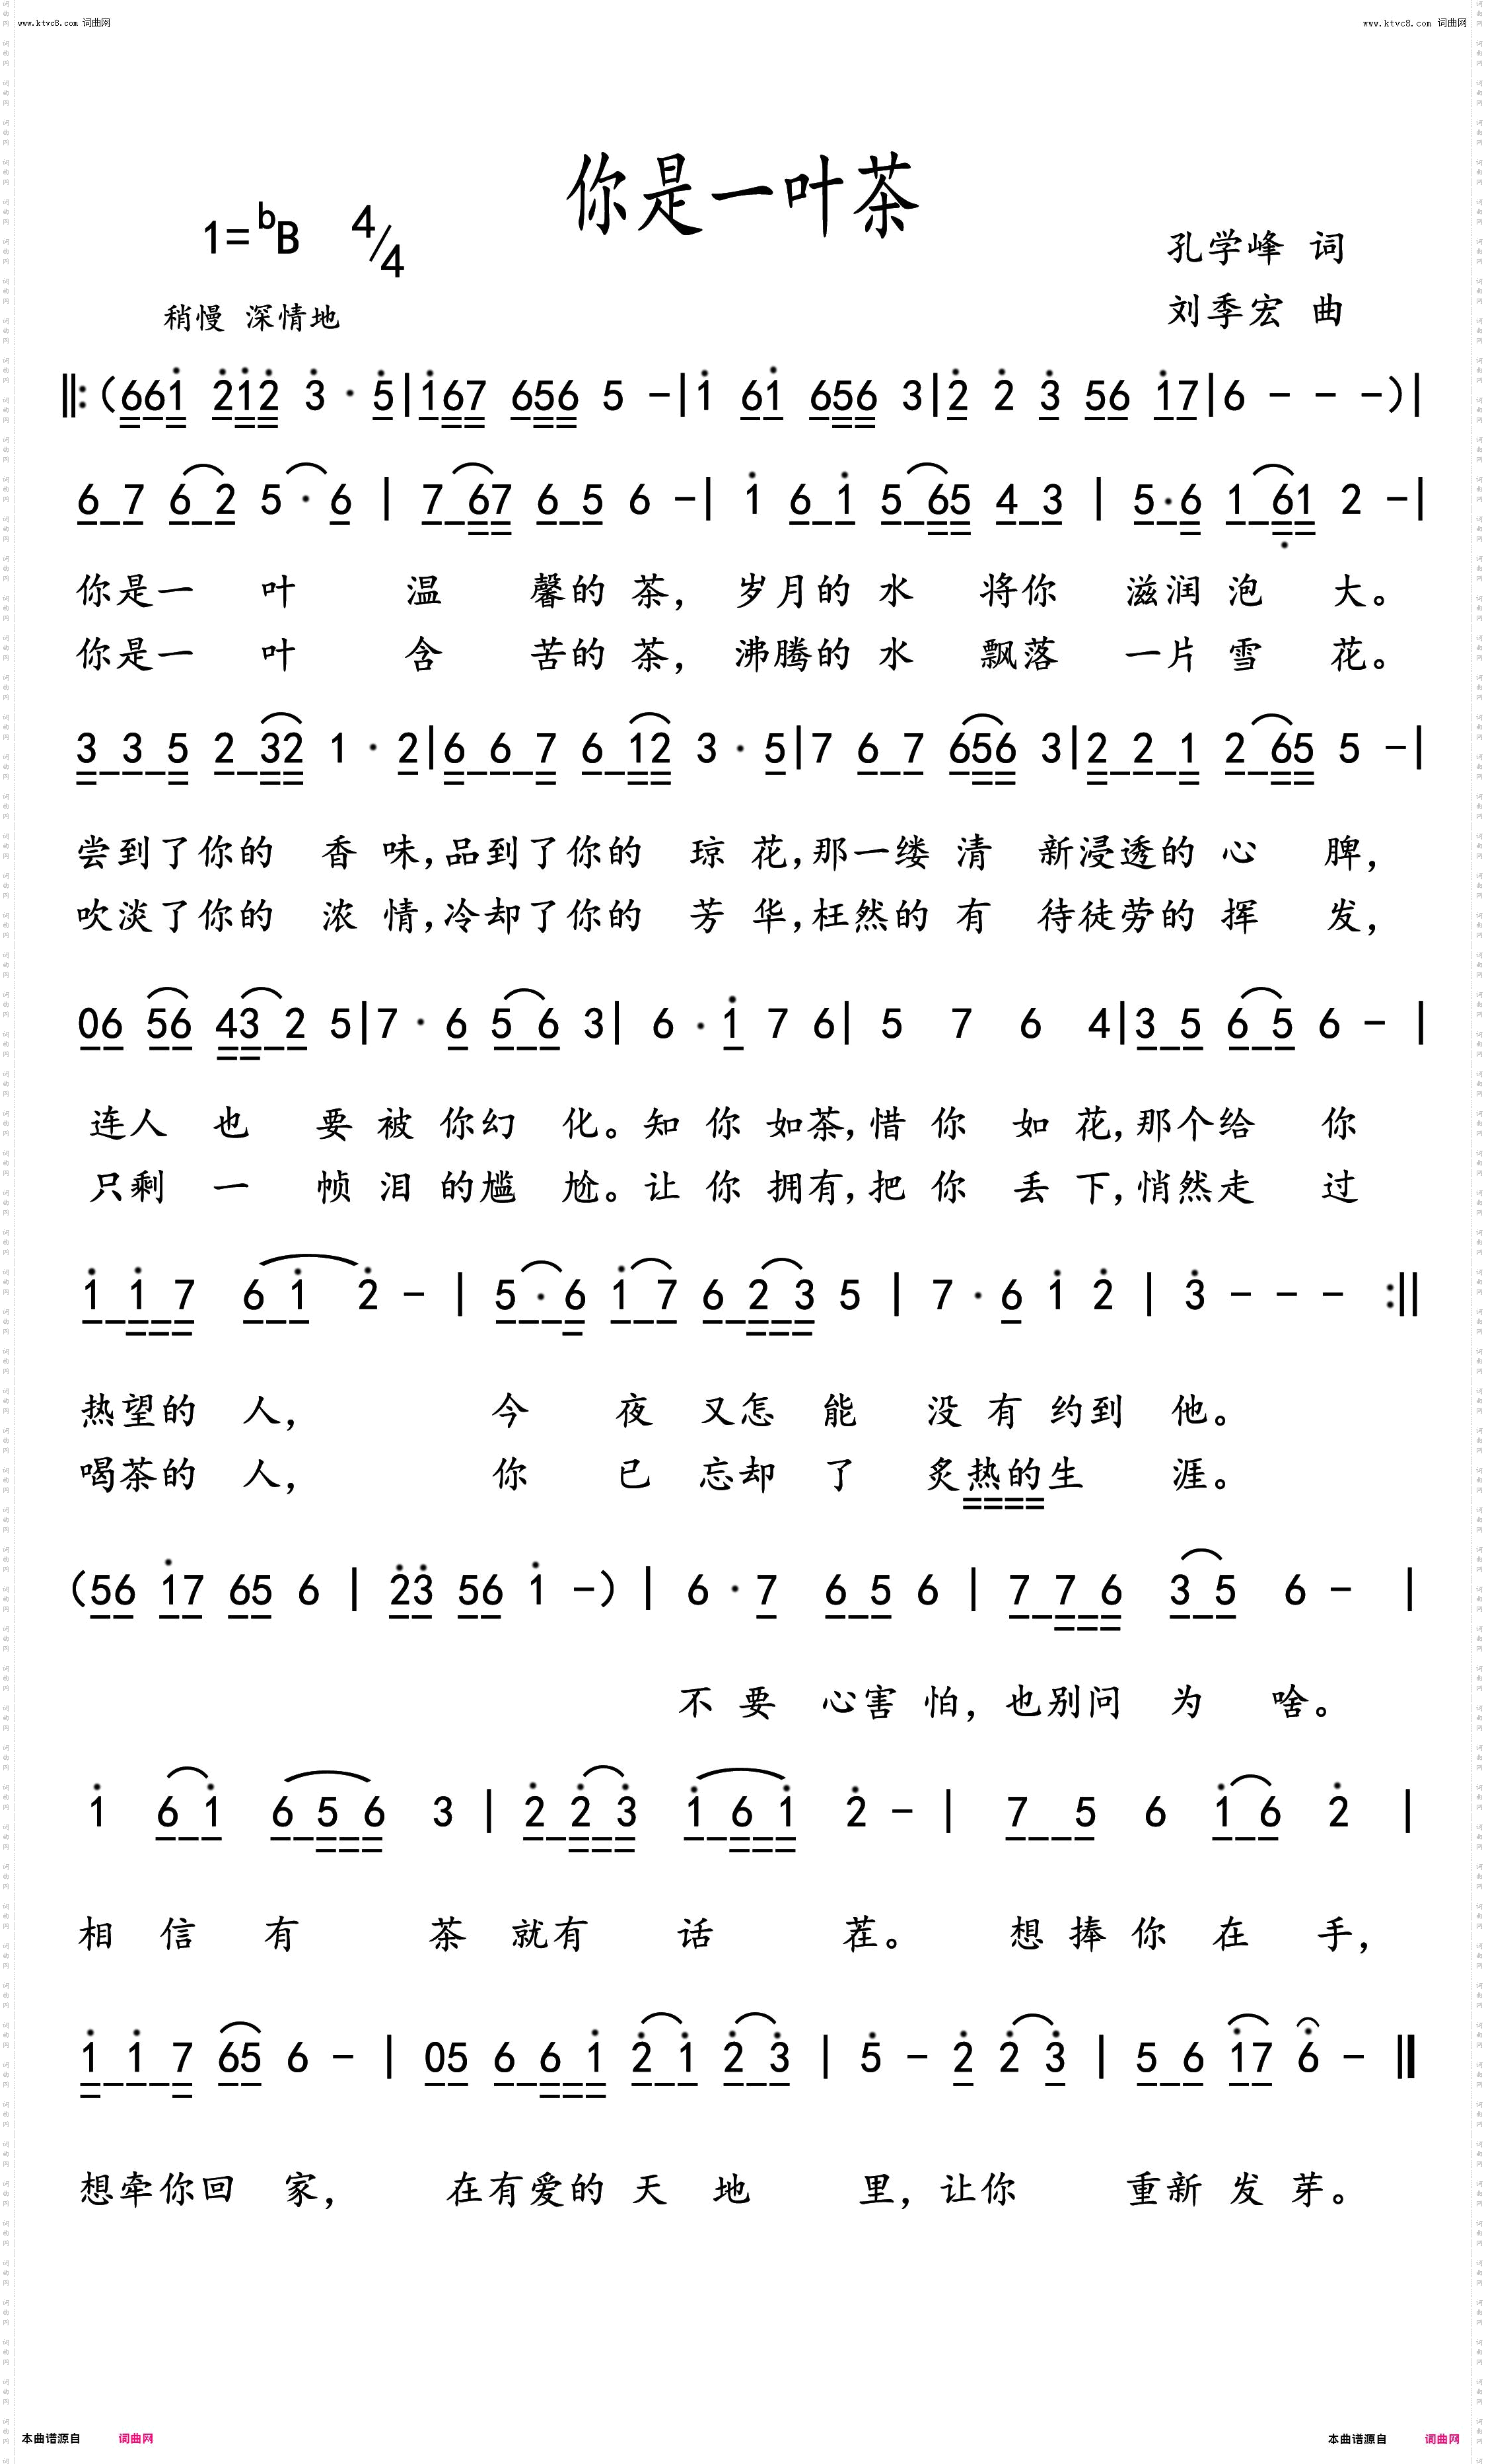 www.ktvc8.com 词曲网 www.ktvc8.com 词曲网
你是一叶茶
1=bB 4/4
孔学峰 词
稍慢 深情地
刘季宏 曲
‖:(661 212 3·5|167 656 5 -|1 61 656 3|2 2 3 56 17|6 - - -)|
6 7 6 2 5·6|7 67 6 5 6 -|1 6 1 5 65 4 3|5·6 1 61 2 -|
你是一 叶 温 馨的 茶, 岁月的 水 将你 滋润 泡 大。
你是一 叶 含 苦的 茶, 沸腾的 水 飘落 一片 雪 花。
3 3 5 2 32 1·2|6 6 7 6 12 3·5|7 6 7 656 3|2 2 1 2 65 5 -|
尝到了你的 香 味,品到了你的 琼 花,那一缕 清 新浸透的 心 脾,
吹淡了你的 浓 情,冷却了你的 芳 华,枉然的 有 待徒劳的 挥 发,
06 56 43 2 5|7·6 5 6 3|6·1 7 6|5 7 6 4|3 5 6 5 6 -|
连人 也 要 被 你幻 化。知 你 如茶,惜 你 如 花,那个给 你
只剩 一 帧 泪 的尴 尬。让 你 拥有,把 你 丢 下,悄然走 过
1 1 7 6 1 2 -|5·6 1 7 6 2 3 5|7·6 1 2|3 - - - :‖
热望的 人, 今 夜 又怎 能 没 有 约到 他。
喝茶的 人, 你 已 忘却 了 炙热的生 涯。
(56 17 65 6|23 56 1 -)|6·7 6 5 6|7 7 6 3 5 6 -|
不 要 心害 怕, 也别问 为 啥。
1 6 1 6 5 6 3|2 2 3 1 6 1 2 -|7 5 6 1 6 2|
相 信 有 茶 就有 话 茬。 想 捧 你 在 手,
1 1 7 65 6 -|05 6 6 1 2 1 2 3|5 - 2 2 3|5 6 17 6 -‖
想牵你回 家, 在有爱的 天 地 里, 让你 重新 发 芽。
本曲谱源自 词曲网 本曲谱源自 词曲网